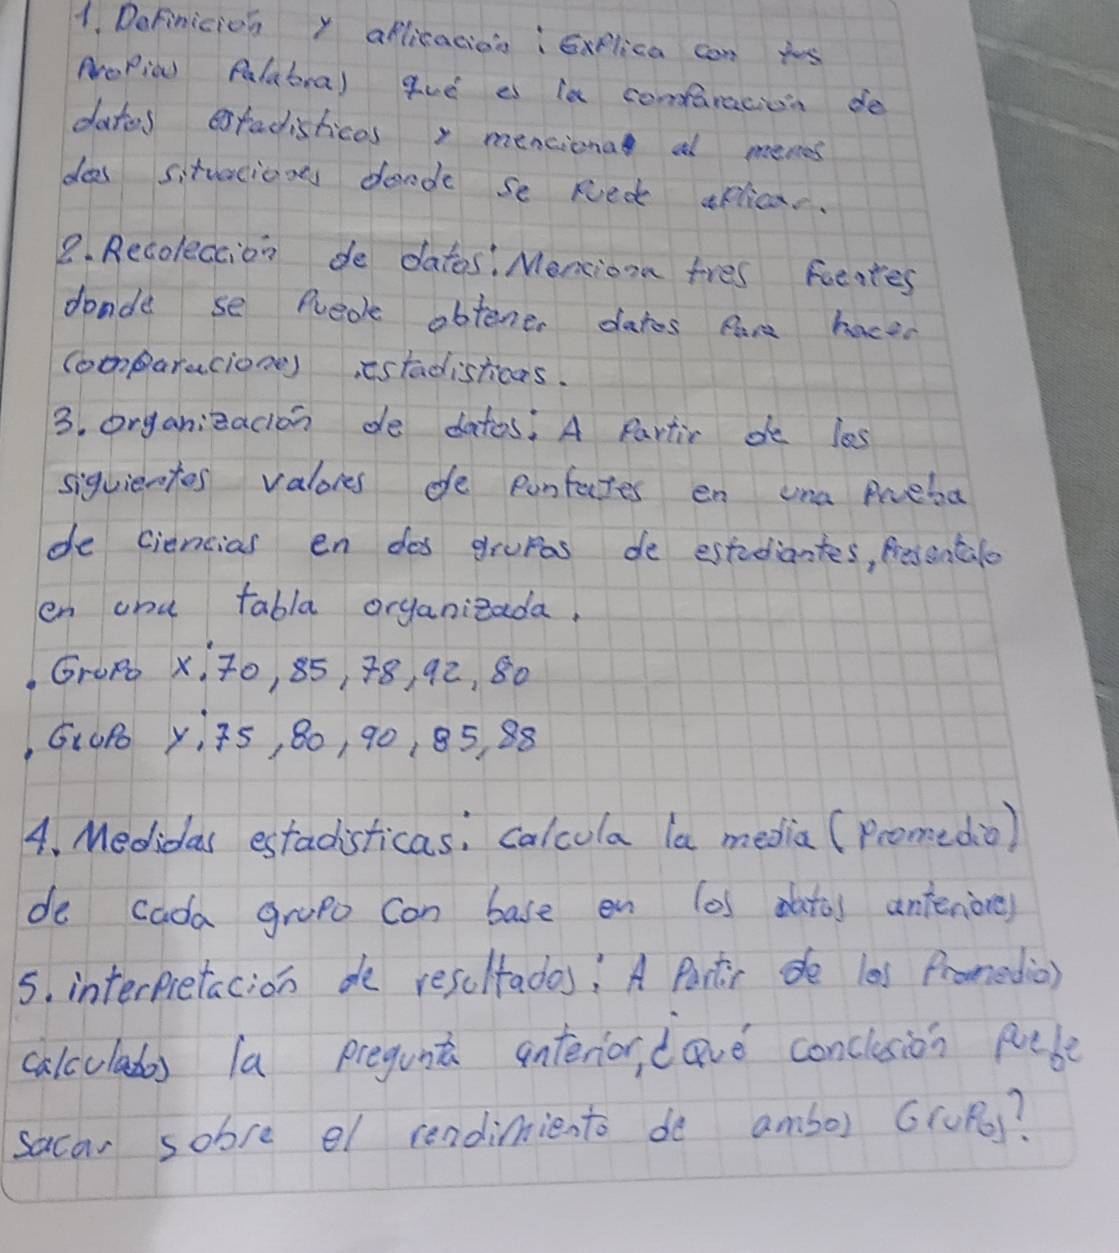 1. Definición y aplicación: Explica con tus
Propias Palabras qué es la comparación de
datos estadísticos y menciona al menos
dos situaciones donde se puede aplicar.
2. Recolección de datos: Menciona tres Fuentes
donde se Puede obtener datos Para hacer
Comparaciones estadísticas.
3. Organización de datos: A Partir de los
siguientes valores de Puntajes en una Prueba
de ciencias en dos grupos de estudiantes, Presentalo
en una tabla organizada.
. Grupo x: 70, 85, 78, 92, 80
. Grupo y: 75, 80, 90, 85, 88
4. Medidas estadisticas: calcula la media (Promedio)
de cada grupo con base en los datos anteriores
5. interpretación de resultados: A Partir de los Promedios
calculados la pregunta anterior, ¿Qué conclusión Puebe
sacar sobre el rendimiento de ambos Grupos?